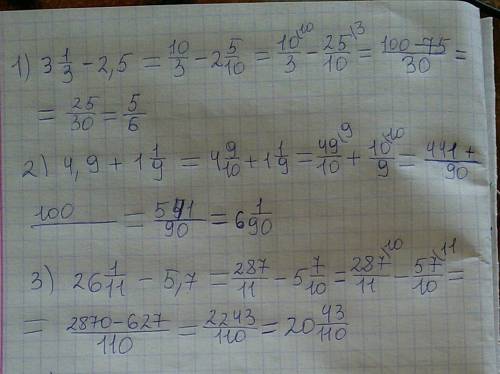 1) 3 1/3 - 2,5 = 10/3 - 2 5/10 = 10\10/3 - 25\3/10 = 100-75/30 =
= 25/30 = 5/6
2) 4,9 + 1 1/9 = 4 9/10 + 1 1/9 = 49\9/10 + 10\10/9 = 441 +/90
100/ = 541/90 = 6 1/90
3) 26 1/11 - 5,7 = 287/11 - 5 7/10 = 287\10/11 - 57\11/10 =
= 2870-627/110 = 2243/110 = 20 43/110